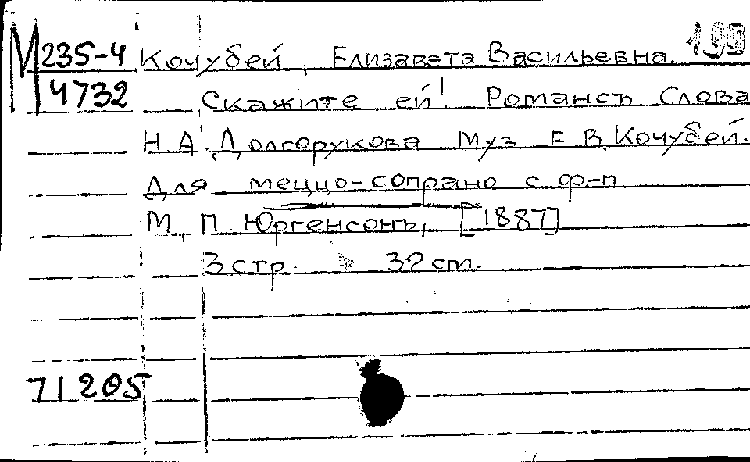 М 235-4 Кочубей, Елизавета Васильевна
4732 Скажите ей! Романсъ Слова
Н.А. Долгорукова Муз Е.В. Кочубей.
Для меццо-сопрано с ф-п
М, П. Юргенсонъ, [1887]
3 стр. 32 cm.
71205